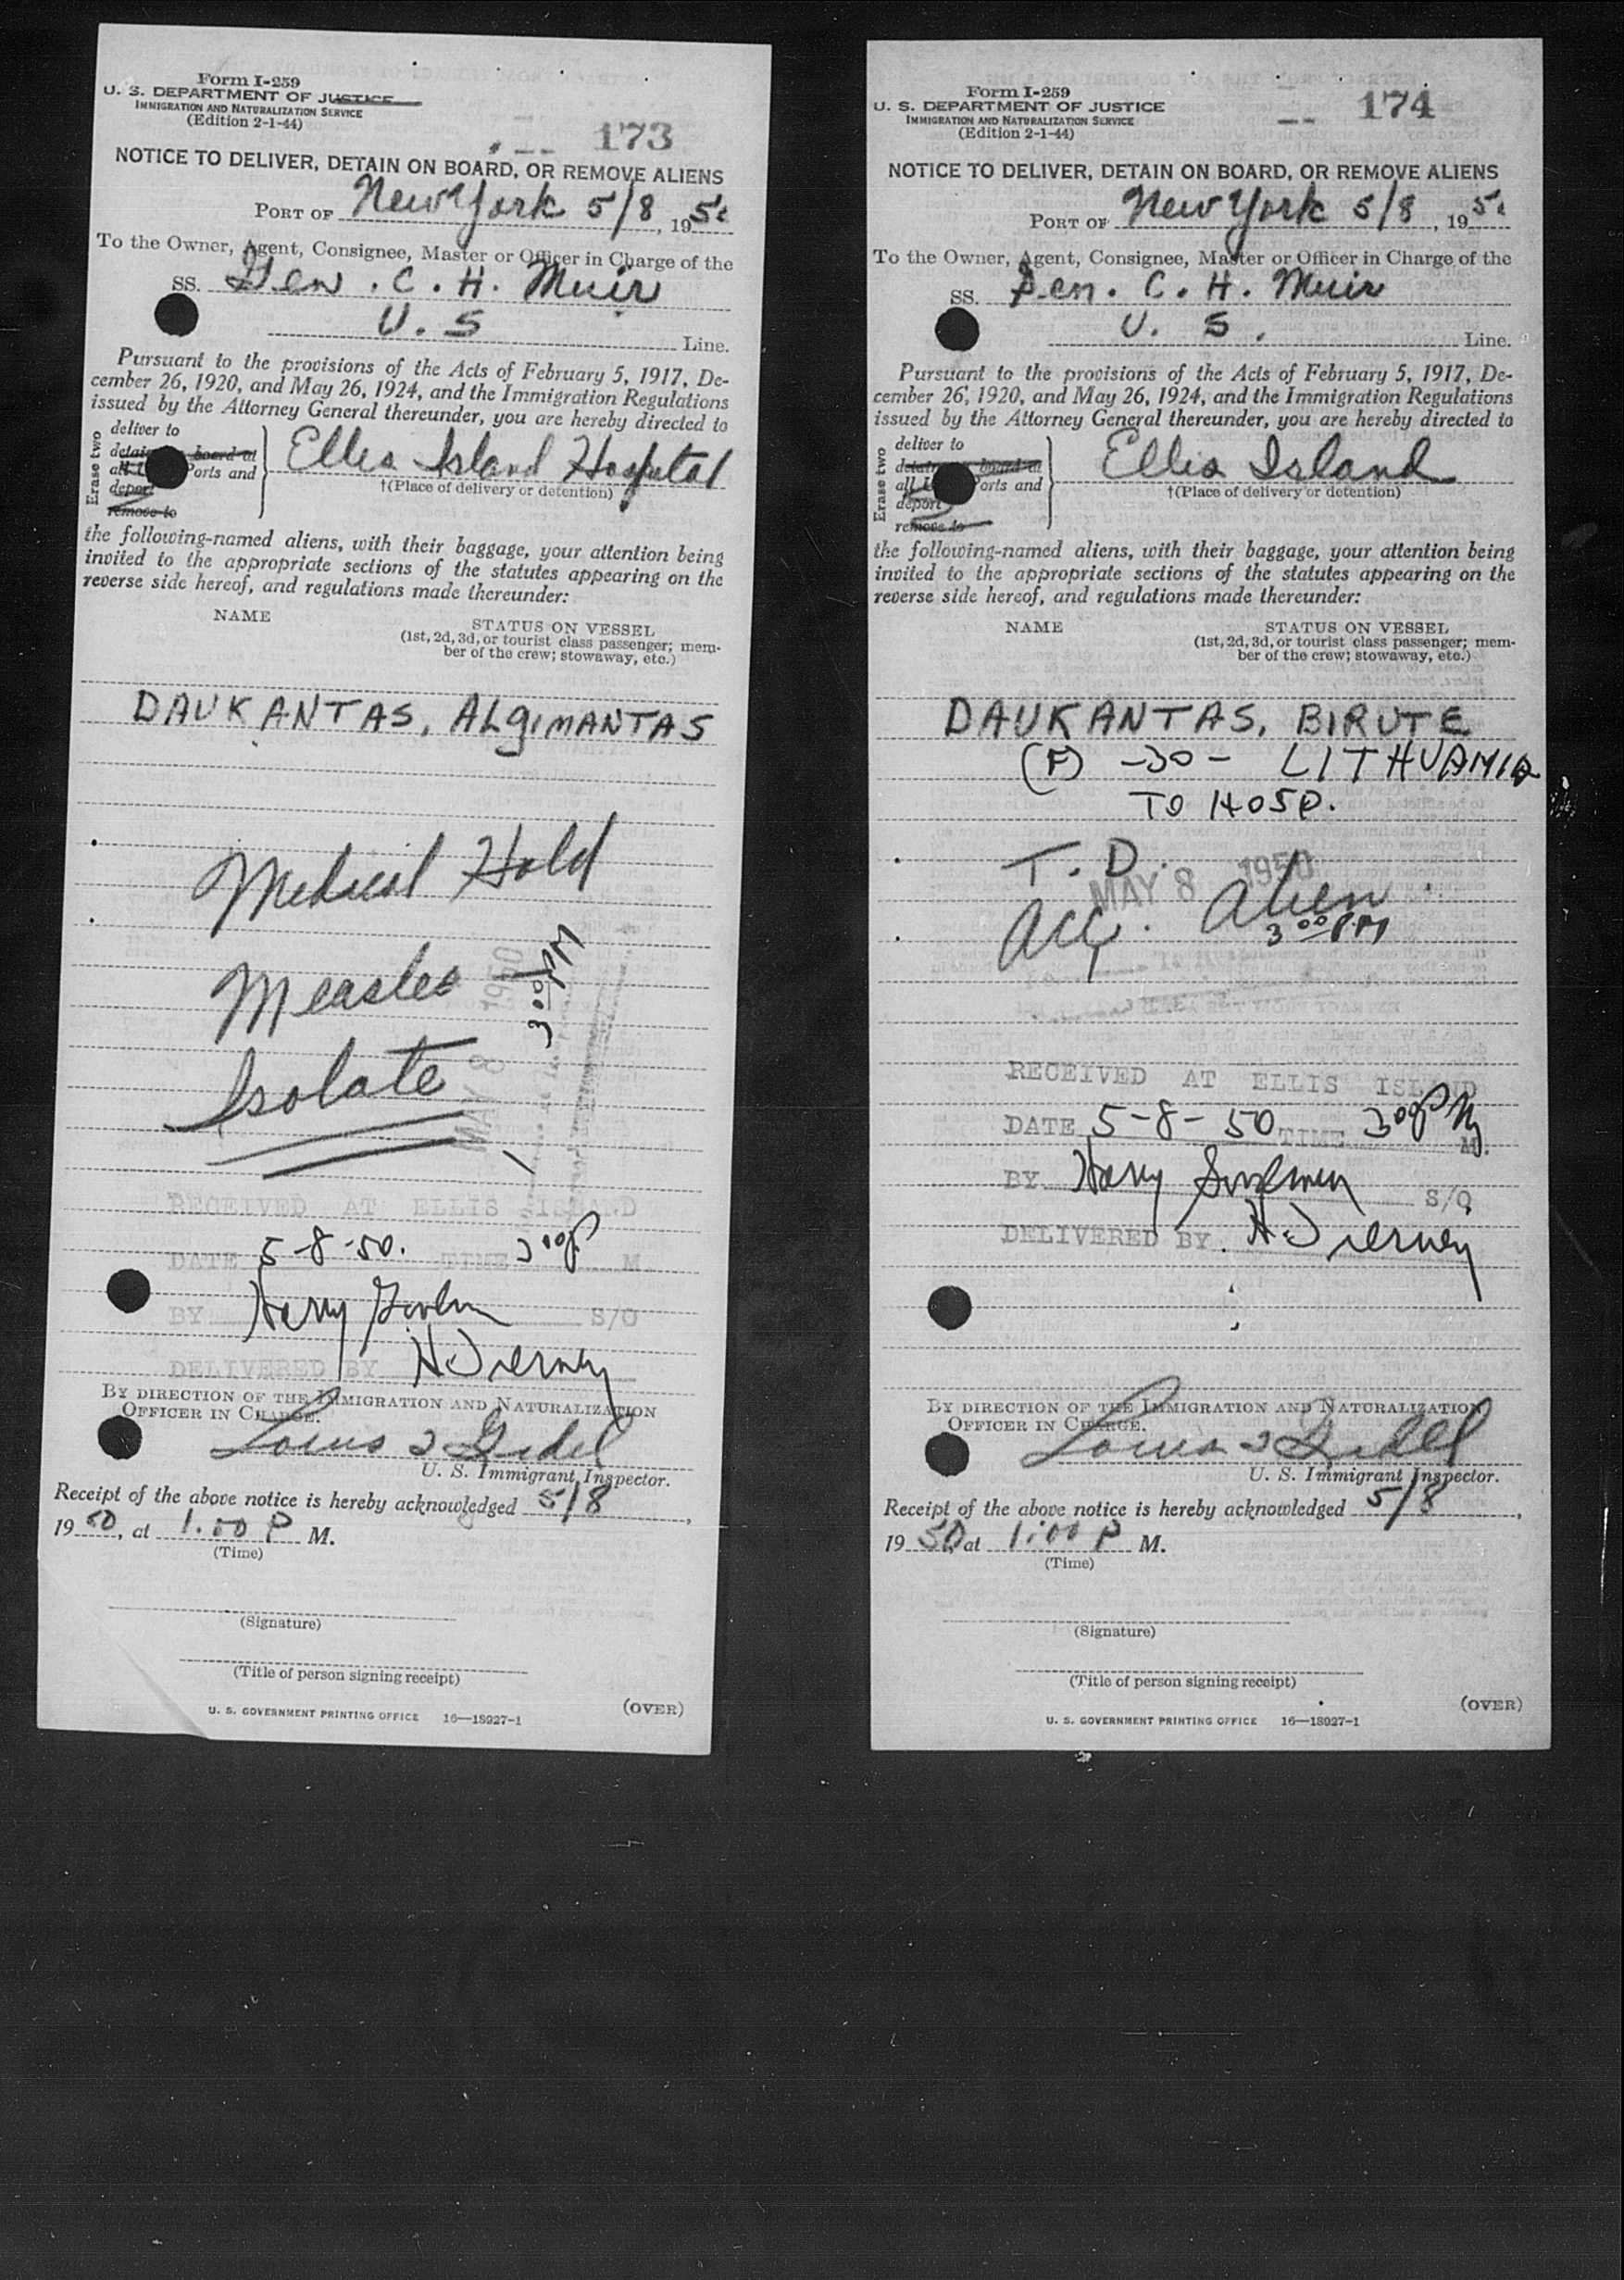 Form I-259
U. S. DEPARTMENT OF JUSTICE
IMMIGRATION AND NATURALIZATION SERVICE
(Edition 2-1-44)
173
NOTICE TO DELIVER, DETAIN ON BOARD, OR REMOVE ALIENS
PORT OF New York 5/8, 195
To the Owner, Agent, Consignee, Master or Officer in Charge of the
SS. Gen. C. H. Muir
U. S Line.
Pursuant to the provisions of the Acts of February 5, 1917, De-
cember 26, 1920, and May 26, 1924, and the Immigration Regulations
issued by the Attorney General thereunder, you are hereby directed to
Erase two
deliver to
detain board at
all ports and
deport
remove to
Ellis Island Hospital
†(Place of delivery or detention)
the following-named aliens, with their baggage, your attention being
invited to the appropriate sections of the statutes appearing on the
reverse side hereof, and regulations made thereunder:
NAME
STATUS ON VESSEL
(1st, 2d, 3d, or tourist class passenger; mem-
ber of the crew; stowaway, etc.)
DAUKANTAS, ALgIMANTAS
Medical Hold
Measles
Isolate
MAY 8 1950
3 00 PM
RECEIVED AT ELLIS ISLAND
DATE 5-8-50. TIME 3 00 P M.
BY Harry S/O
DELIVERED BY H Tierney
BY DIRECTION OF THE IMMIGRATION AND NATURALIZATION
OFFICER IN CHARGE.
Louis
U. S. Immigrant Inspector.
Receipt of the above notice is hereby acknowledged 5/8,
19 50, at 1.00 P M.
(Time)
(Signature)
(Title of person signing receipt)
U. S. GOVERNMENT PRINTING OFFICE 16—18927-1
(OVER)
Form I-259
U. S. DEPARTMENT OF JUSTICE
IMMIGRATION AND NATURALIZATION SERVICE
(Edition 2-1-44)
174
NOTICE TO DELIVER, DETAIN ON BOARD, OR REMOVE ALIENS
PORT OF New York 5/8, 195
To the Owner, Agent, Consignee, Master or Officer in Charge of the
SS. Gen. C. H. Muir
U. S. Line.
Pursuant to the provisions of the Acts of February 5, 1917, De-
cember 26, 1920, and May 26, 1924, and the Immigration Regulations
issued by the Attorney General thereunder, you are hereby directed to
Erase two
deliver to
detain board at
all ports and
deport
remove to
Ellis Island
†(Place of delivery or detention)
the following-named aliens, with their baggage, your attention being
invited to the appropriate sections of the statutes appearing on the
reverse side hereof, and regulations made thereunder:
NAME
STATUS ON VESSEL
(1st, 2d, 3d, or tourist class passenger; mem-
ber of the crew; stowaway, etc.)
DAUKANTAS, BIRUTE
(F) -30- LITHUANIA
TO HOSP.
T. D.
MAY 8 1950
Acc. Alien
3 00 PM
RECEIVED AT ELLIS ISLAND
DATE 5-8-50 TIME 3 00 P M.
BY Harry S/O
DELIVERED BY. H Tierney
BY DIRECTION OF THE IMMIGRATION AND NATURALIZATION
OFFICER IN CHARGE.
Louis
U. S. Immigrant Inspector.
Receipt of the above notice is hereby acknowledged 5/8,
19 50, at 1:00 P M.
(Time)
(Signature)
(Title of person signing receipt)
U. S. GOVERNMENT PRINTING OFFICE 16—18927-1
(OVER)